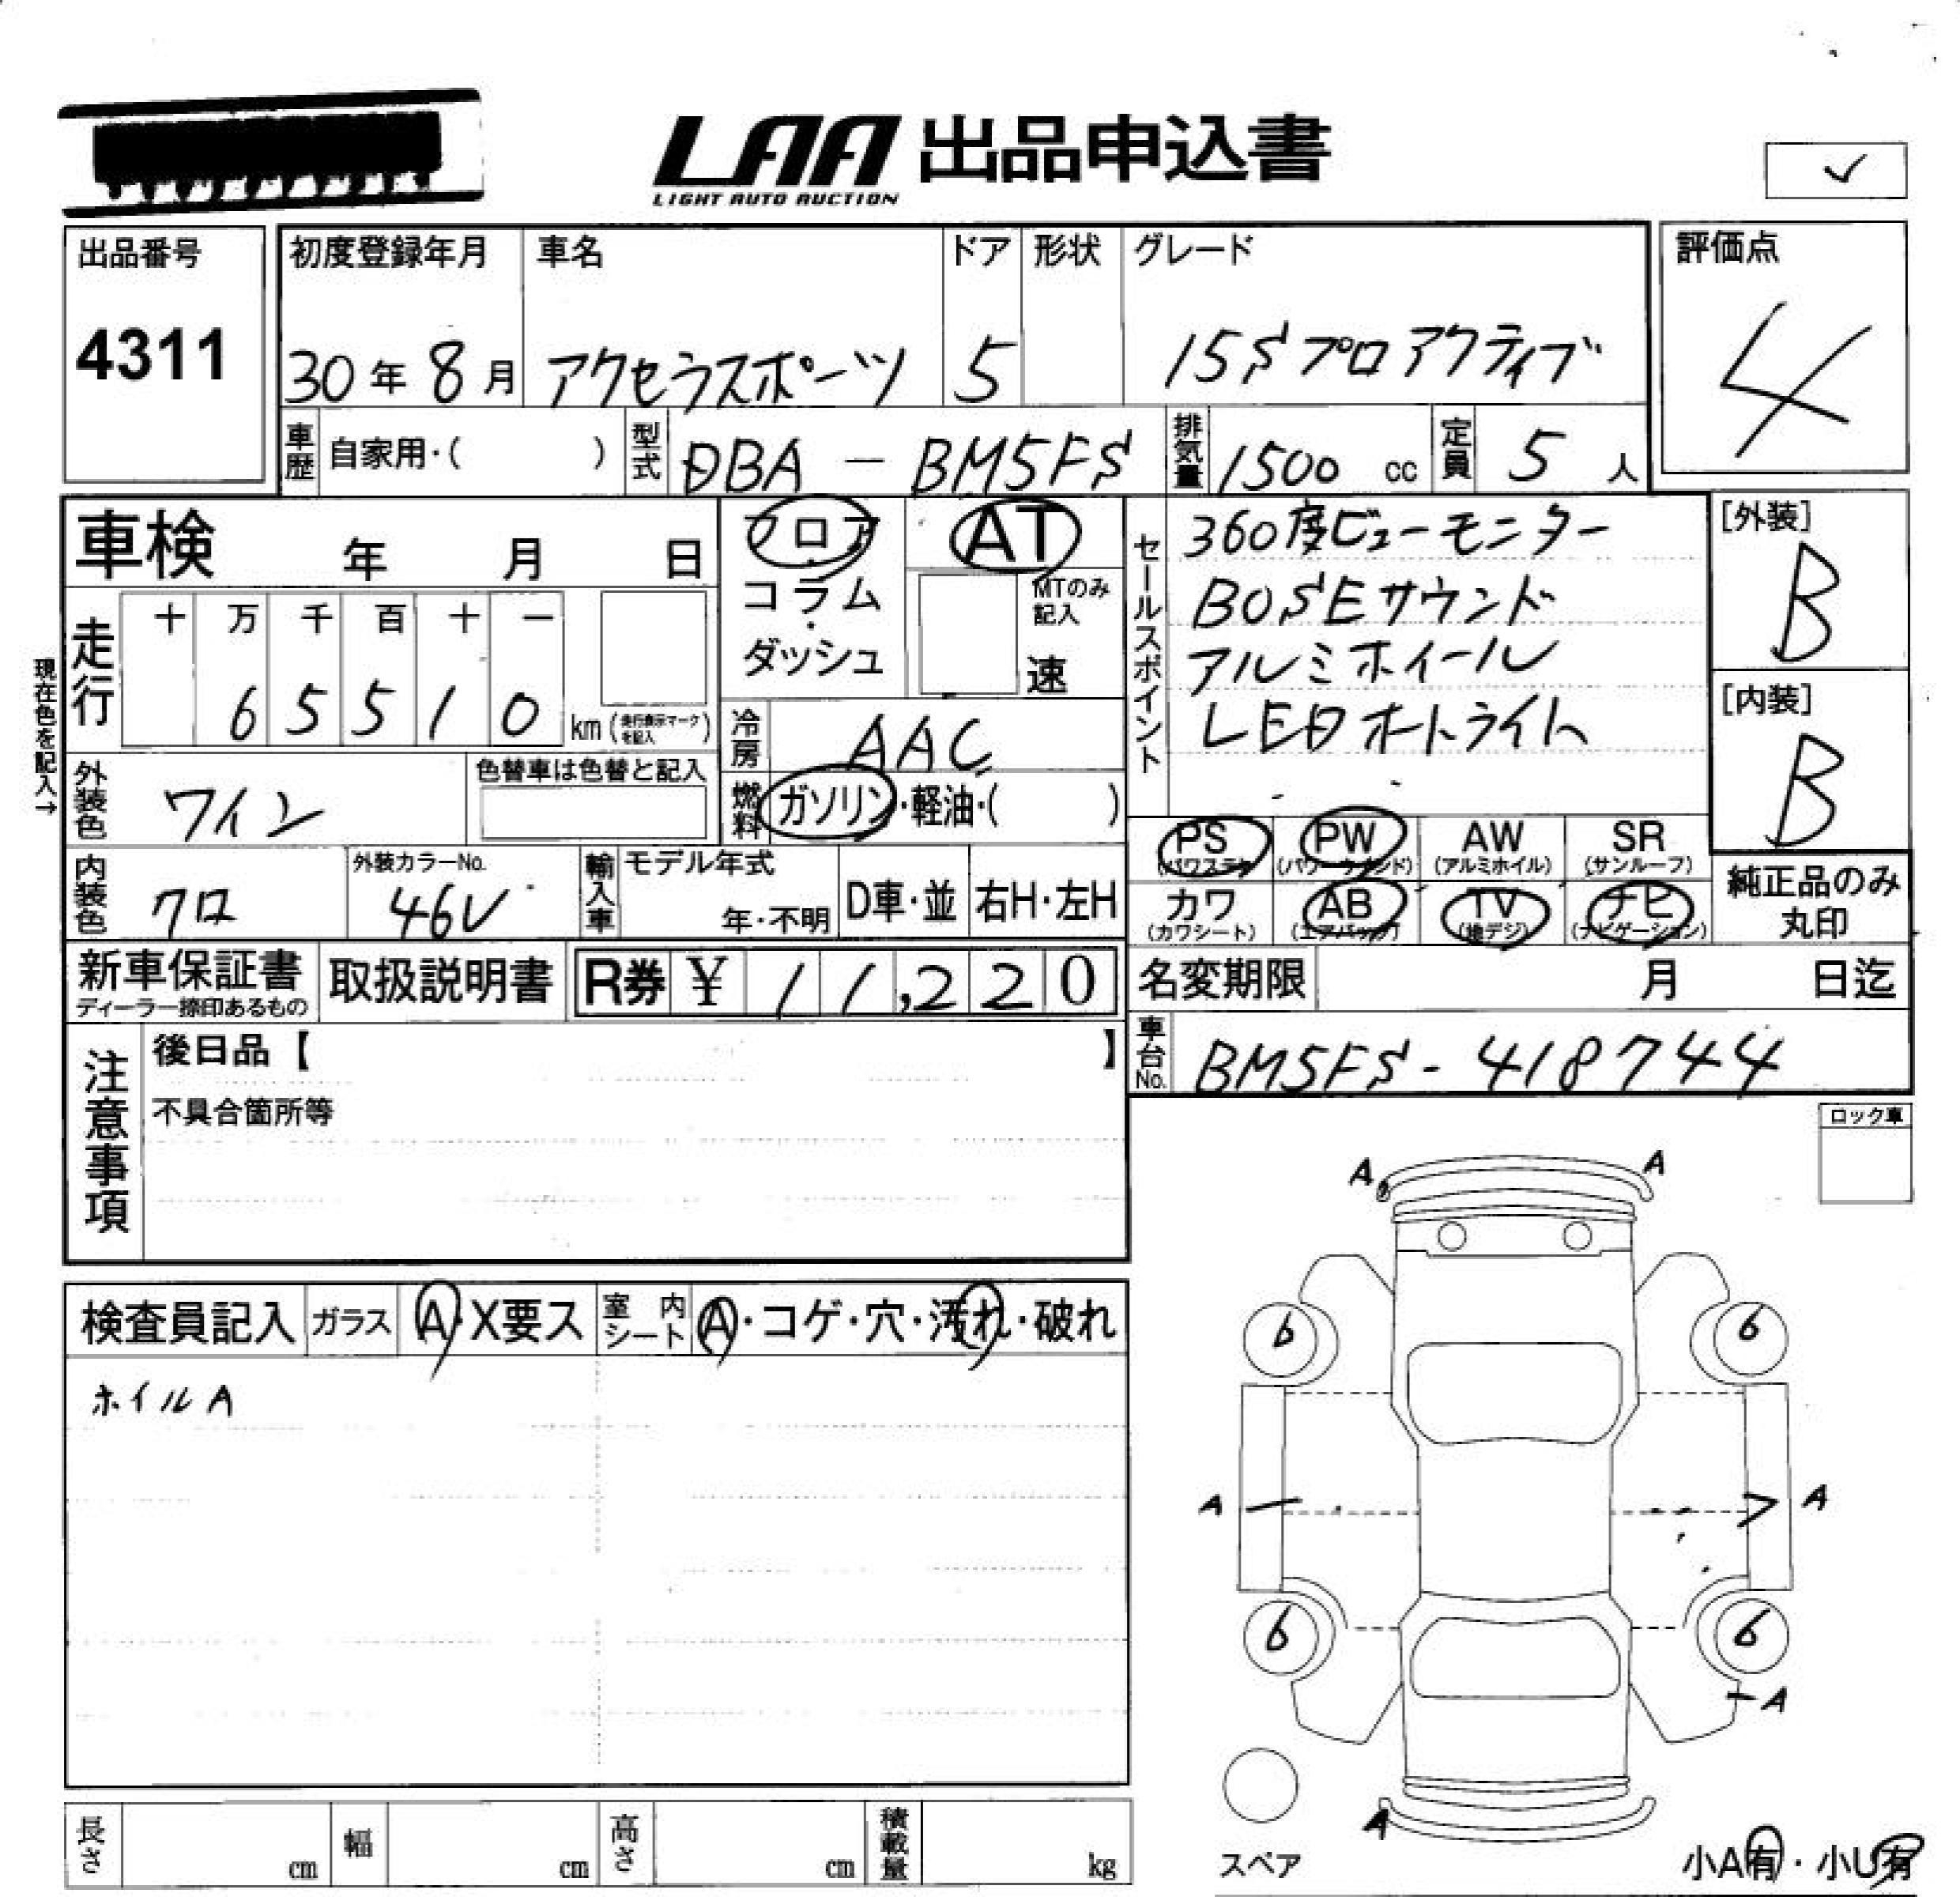 LAA 出品申込書
LIGHT AUTO AUCTION
✓
出品番号
4311
初度登録年月 車名 ドア 形状 グレード
30年8月 アクセラスポーツ 5 15Sプロアクティブ
評価点
4
車歴 自家用・( ) 型式 DBA－BM5FS 排気量 1500 cc 定員 5 人
車検 年 月 日
フロア
・
コラム
・
ダッシュ
AT
MTのみ
記入
速
セールスポイント
360度ビューモニター
BOSEサウンド
アルミホイール
LEDオートライト
[外装]
B
[内装]
B
現在色を記入→
走行
十 万 千 百 十 一
6 5 5 1 0 km (走行表示マークを記入)
冷房 AAC
燃料 ガソリン・軽油・( )
外装色 ワイン 色替車は色替と記入
内装色 クロ 外装カラーNo. 46V
輸入車 モデル年式
年・不明 D車・並 右H・左H
PS PW AW SR
(パワステ) (パワーウインド) (アルミホイル) (サンルーフ)
カワ AB TV ナビ
(カワシート) (エアバック) (地デジ) (ナビゲーション)
純正品のみ
丸印
新車保証書
ディーラー捺印あるもの
取扱説明書
R券 ¥ 11,220
名変期限 月 日迄
車台No. BM5FS-418744
注意事項
後日品【 】
不具合箇所等
ロック車
検査員記入 ガラス A・X要ス 室内シート A・コゲ・穴・汚れ・破れ
ホイルA
A A
6 6
A A
6 6
A
A
スペア
小A有・小U有
長さ cm 幅 cm 高さ cm 積載量 kg